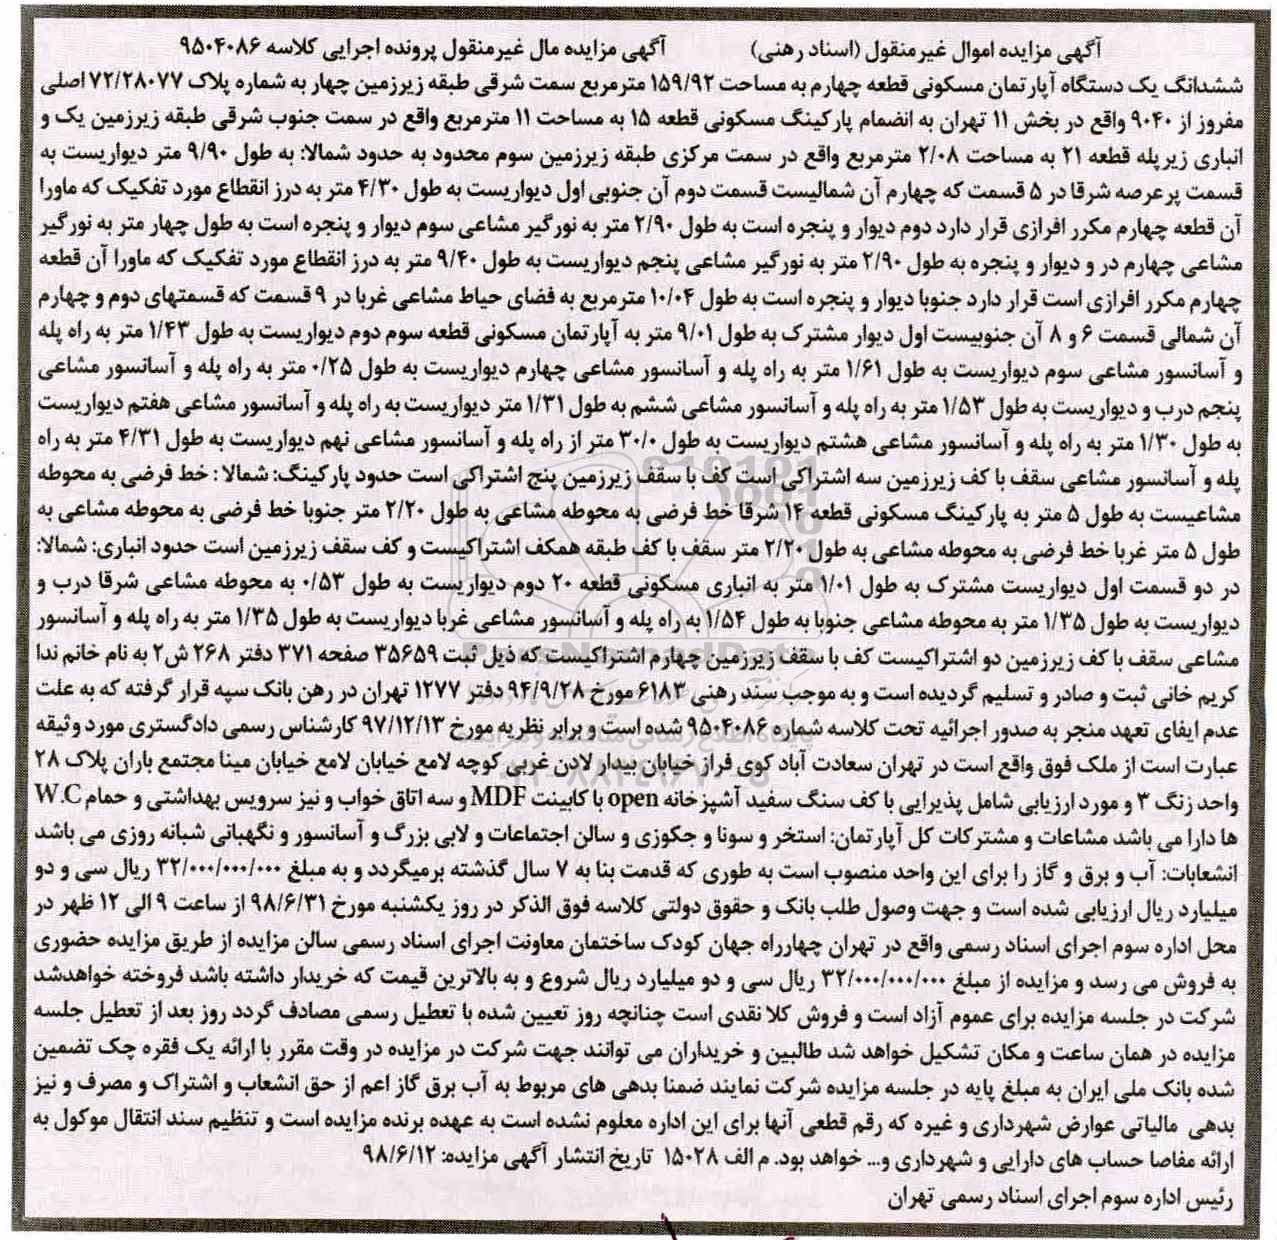 آگهی مزایده اموال غیرمنقول (اسناد رهنی) آگهی مزایده مال غیرمنقول پرونده اجرایی کلاسه ۹۵۰۴۰۸۶
ششدانگ یک دستگاه آپارتمان مسکونی قطعه چهارم به مساحت ۱۵۹/۹۲ مترمربع سمت شرقی طبقه زیرزمین چهار به شماره پلاک ۷۲/۲۸۰۷۷ اصلی
مفروز از ۹۰۴۰ واقع در بخش ۱۱ تهران به انضمام پارکینگ مسکونی قطعه ۱۵ به مساحت ۱۱ مترمربع واقع در سمت جنوب شرقی طبقه زیرزمین یک و
انباری زیرپله قطعه ۲۱ به مساحت ۲/۰۸ مترمربع واقع در سمت مرکزی طبقه زیرزمین سوم محدود به حدود شمالا: به طول ۹/۹۰ متر دیواریست به
قسمت پرعرصه شرقا در ۵ قسمت که چهارم آن شمالیست قسمت دوم آن جنوبی اول دیواریست به طول ۴/۳۰ متر به درز انقطاع مورد تفکیک که ماورا
آن قطعه چهارم مکرر افرازی قرار دارد دوم دیوار و پنجره است به طول ۲/۹۰ متر به نورگیر مشاعی سوم دیوار و پنجره است به طول چهار متر به نورگیر
مشاعی چهارم در و دیوار و پنجره به طول ۲/۹۰ متر به نورگیر مشاعی پنجم دیواریست به طول ۹/۴۰ متر به درز انقطاع مورد تفکیک که ماورا آن قطعه
چهارم مکرر افرازی است قرار دارد جنوبا دیوار و پنجره است به طول ۱۰/۰۴ مترمربع به فضای حیاط مشاعی غربا در ۹ قسمت که قسمتهای دوم و چهارم
آن شمالی قسمت ۶ و ۸ آن جنوبیست اول دیوار مشترک به طول ۹/۰۱ متر به آپارتمان مسکونی قطعه سوم دوم دیواریست به طول ۱/۴۳ متر به راه پله
و آسانسور مشاعی سوم دیواریست به طول ۱/۶۱ متر به راه پله و آسانسور مشاعی چهارم دیواریست به طول ۰/۲۵ متر به راه پله و آسانسور مشاعی
پنجم درب و دیواریست به طول ۱/۵۳ متر به راه پله و آسانسور مشاعی ششم به طول ۱/۳۱ متر دیواریست به راه پله و آسانسور مشاعی هفتم دیواریست
به طول ۱/۳۰ متر به راه پله و آسانسور مشاعی هشتم دیواریست به طول ۳۰/۰ متر از راه پله و آسانسور مشاعی نهم دیواریست به طول ۴/۳۱ متر به راه
پله و آسانسور مشاعی سقف با کف زیرزمین سه اشتراکی است کف با سقف زیرزمین پنج اشتراکی است حدود پارکینگ: شمالا : خط فرضی به محوطه
مشاعیست به طول ۵ متر به پارکینگ مسکونی قطعه ۱۴ شرقا خط فرضی به محوطه مشاعی به طول ۲/۲۰ متر جنوبا خط فرضی به محوطه مشاعی به
طول ۵ متر غربا خط فرضی به محوطه مشاعی به طول ۲/۲۰ متر سقف با کف طبقه همکف اشتراکیست و کف سقف زیرزمین است حدود انباری: شمالا:
در دو قسمت اول دیواریست مشترک به طول ۱/۰۱ متر به انباری مسکونی قطعه ۲۰ دوم دیواریست به طول ۰/۵۳ به محوطه مشاعی شرقا درب و
دیواریست به طول ۱/۳۵ متر به محوطه مشاعی جنوبا به طول ۱/۵۴ به راه پله و آسانسور مشاعی غربا دیواریست به طول ۱/۳۵ متر به راه پله و آسانسور
مشاعی سقف با کف زیرزمین دو اشتراکیست کف با سقف زیرزمین چهارم اشتراکیست که ذیل ثبت ۳۵۶۵۹ صفحه ۳۷۱ دفتر ۲۶۸ ش۲ به نام خانم ندا
کریم خانی ثبت و صادر و تسلیم گردیده است و به موجب سند رهنی ۶۱۸۳ مورخ ۹۴/۹/۲۸ دفتر ۱۲۷۷ تهران در رهن بانک سپه قرار گرفته که به علت
عدم ایفای تعهد منجر به صدور اجرائیه تحت کلاسه شماره ۹۵۰۴۰۸۶ شده است و برابر نظریه مورخ ۹۷/۱۲/۱۳ کارشناس رسمی دادگستری مورد وثیقه
عبارت است از ملک فوق واقع است در تهران سعادت آباد کوی فراز خیابان بیدار لادن غربی کوچه لامع خیابان لامع خیابان مینا مجتمع باران پلاک ۲۸
واحد زنگ ۳ و مورد ارزیابی شامل پذیرایی با کف سنگ سفید آشپزخانه open با کابینت MDF و سه اتاق خواب و نیز سرویس بهداشتی و حمام W.C
ها دارا می باشد مشاعات و مشترکات کل آپارتمان: استخر و سونا و جکوزی و سالن اجتماعات و لابی بزرگ و آسانسور و نگهبانی شبانه روزی می باشد
انشعابات: آب و برق و گاز را برای این واحد منصوب است به طوری که قدمت بنا به ۷ سال گذشته برمیگردد و به مبلغ ۳۲/۰۰۰/۰۰۰/۰۰۰ ریال سی و دو
میلیارد ریال ارزیابی شده است و جهت وصول طلب بانک و حقوق دولتی کلاسه فوق الذکر در روز یکشنبه مورخ ۹۸/۶/۳۱ از ساعت ۹ الی ۱۲ ظهر در
محل اداره سوم اجرای اسناد رسمی واقع در تهران چهارراه جهان کودک ساختمان معاونت اجرای اسناد رسمی سالن مزایده از طریق مزایده حضوری
به فروش می رسد و مزایده از مبلغ ۳۲/۰۰۰/۰۰۰/۰۰۰ ریال سی و دو میلیارد ریال شروع و به بالاترین قیمت که خریدار داشته باشد فروخته خواهدشد
شرکت در جلسه مزایده برای عموم آزاد است و فروش کلا نقدی است چنانچه روز تعیین شده با تعطیل رسمی مصادف گردد روز بعد از تعطیل جلسه
مزایده در همان ساعت و مکان تشکیل خواهد شد طالبین و خریداران می توانند جهت شرکت در مزایده در وقت مقرر با ارائه یک فقره چک تضمین
شده بانک ملی ایران به مبلغ پایه در جلسه مزایده شرکت نمایند ضمنا بدهی های مربوط به آب برق گاز اعم از حق انشعاب و اشتراک و مصرف و نیز
بدهی مالیاتی عوارض شهرداری و غیره که رقم قطعی آنها برای این اداره معلوم نشده است به عهده برنده مزایده است و تنظیم سند انتقال موکول به
ارائه مفاصا حساب های دارایی و شهرداری و... خواهد بود. م الف ۱۵۰۲۸ تاریخ انتشار آگهی مزایده: ۹۸/۶/۱۲
رئیس اداره سوم اجرای اسناد رسمی تهران